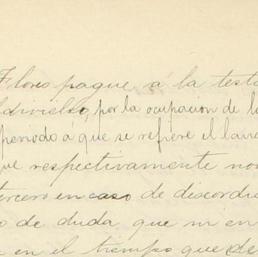 Flores pague á la testa
por la ocupación de l
periodo á que se refiere el lau
ue respectivamente no
tercero en caso de discordia
o de duda que ni en
en el tiempo que de